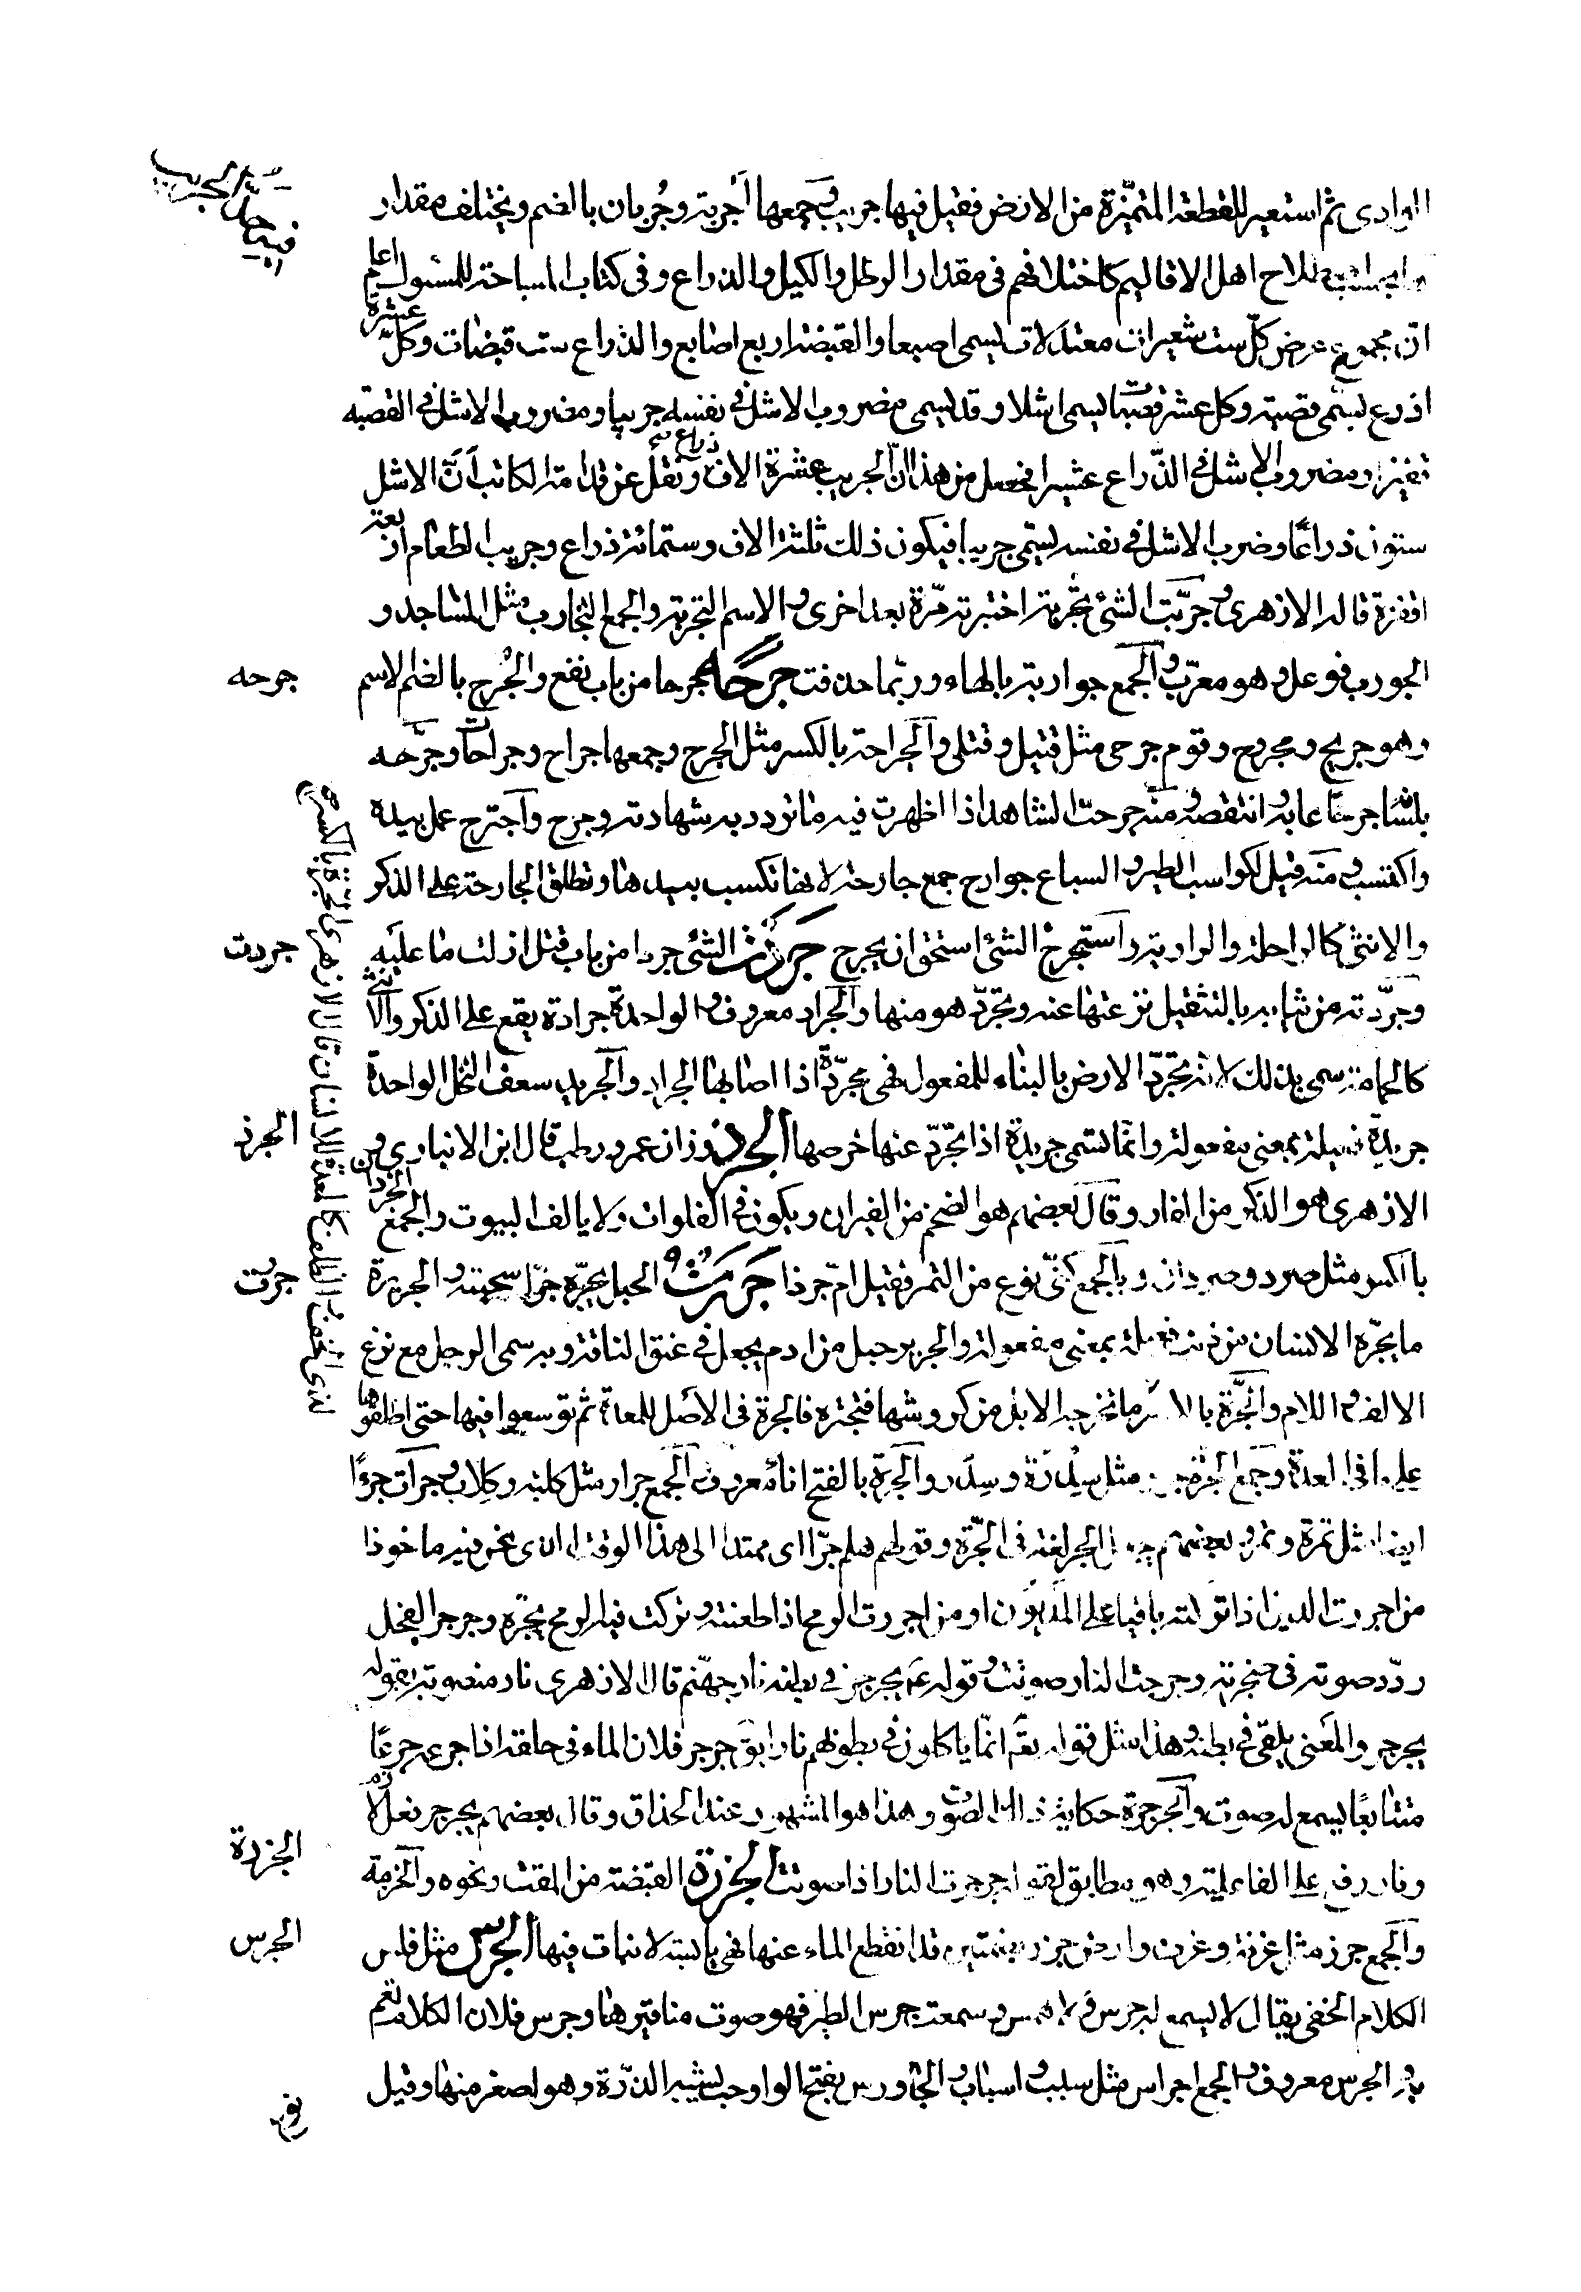 الوادى ثم استعير للقطعة المتميّزة من الارض فقيل فيها جريب وجمعها أجربة وجُربان بالضم ويختلف مقدار
بحسب اصطلاح اهل الاقاليم كاختلافهم فى مقدار الرطل والكيل والذراع وفى كتاب المساحة للسموأل اعلم
انّ مجموع عرض كلّ ست شعيرات معتدلات يسمى اصبعا والقبضة اربع اصابع والذراع ست قبضات وكل عشرة
اذرع يسمى قصبة وكل عشر قصبات يسمى اشلا وقد يسمى مضروب الاشل فى نفسه جريبا ومضروب الاشل فى القصبة
قفيزا ومضروب الاشل فى الذّراع عشيرا فحصل من هذا انّ الجريب عشرة الاف ذراع ونقل عن قدامة الكاتب أنّ الاشل
ستون ذراعًا وضرب الاشل فى نفسه يسمى جريبا فيكون ذلك ثلثة الاف وستمائة ذراع وجريب الطعام اربعة
اقفزة قاله الازهرى وجرّبت الشئ تجربة اختبرته مرّة بعد اخرى والاسم التجربة والجمع التجارب مثل المساجد و
الجورب فوعل وهو معرّب والجمع جواربة بالهاء وربّما حذفت جرحه جرحا من باب نفع والجُرح بالضم الاسم
وهو جريح ومجروح وقوم جرحى مثل قتيل وقتلى والجراحة بالكسر مثل الجرح وجمعها جراح وجراحات وجرّحه
بلسانه جرحًا عابه وانتقصه ومنه جرحت الشاهد اذا اظهرت فيه ما تردد به شهادته وجرح واجترح عمل بيده
واكتسب ومنه قيل لكواسب الطير والسباع جوارح جمع جارحة لانها تكسب بيدها وتطلق الجارحة على الذكر
والانثى كالراحلة والراوية واستجرح الشئ استحق ان يجرح جردت الشئ جردا من باب قتل ازلت ما عليه
وجرّدته من ثيابه بالتثقيل نزعتها عنه وتجرّد هو منها والجراد معروف والواحدة جرادة يقع على الذكر والانثى
كالحمامة سمى بذلك لانه يجرّد الارض بالبناء للمفعول فهى مجرّدة اذا اصابها الجراد والجريد سعف النخل الواحدة
جريدة فعيلة بمعنى مفعولة وانّما تسمى جريدة اذا تجرّد عنها خوصها الجرذ وزان عمر ورطب قال ابن الانبارى و
الازهرى هو الذكر من الفار وقال بعضهم هو الضخم من الفيران ويكون فى الفلوات ولا يالف البيوت والجمع الجرذان
بالكسر مثل صرد وصردان وبالجمع كنّى نوع من التمر فقيل امّ جرذان جررت الحبل ونحوه جرّا سحبته والجريرة
ما يجرّه الانسان من ذنب فعيلة بمعنى مفعولة والجرير حبل من ادم يجعل فى عنق الناقة وبه سمى الرجل مع نزع
الالف واللام والجرّة بالكسر ما تخرجه الابل من كروشها فتجتره فالجرة فى الاصل للمعدة ثم توسعوا فيها حتى اطلقوها
على ما فى المعدة وجمع الجرة جرر مثل سِدرة وسِدر والجرّة بالفتح اناء معروف والجمع جرار مثل كلبة وكلاب وجرات وجرّا
ايضا مثل تمرة وتمر وبعضهم يجعل الجر لغة فى الجرّة وقولهم هلم جرّا اى ممتدا الى هذا الوقت الذى نحن فيه ماخوذا
من اجررت الدين اذا تركته باقيا على المديون او من اجررت الرمح اذا طعنته وتركت فيه الرمح يجرّه وجرجر الفحل
ردّد صوته فى حنجرته وجرجرت النار صوتت وقوله عم يجرجر فى بطنه نار جهنّم قال الازهرى نار منصوبة بقوله
يجرجر والمعنى يلقى فى بطنه وهذا مثل قوله تعه انّما ياكلون فى بطونهم نارا يق جرجر فلان الماء فى حلقه اذا جرعه جرعًا
متتابعًا يسمع له صوت والجرجرة حكاية ذلك الصوت وهذا هو المشهور عند الحذاق وقال بعضهم يجرجر فعل لازم
ونار رفع على الفاعلية وهو مطابق لقوله جرجرت النار اذا صوتت الجرزة القبضة من القت ونحوه والحزمة
والجمع جرز مثل غرفة وغرف وارض جرز بضمتين قد انقطع الماء عنها فهى يابسة لا نبات فيها الجرس مثل فلس
الكلام الخفى يقال لا يسمع له جرس ولا همس وسمعت جرس الطير فهو صوت مناقيرها وجرس فلان الكلام نغم
به والجرس معروف والجمع اجراس مثل سبب واسباب والجاورس بفتح الواو حب يشبه الذّرة وهو اصغر منها وقيل
جرحه
جردت
الجرذ
جررت
الجرزة
الجرس